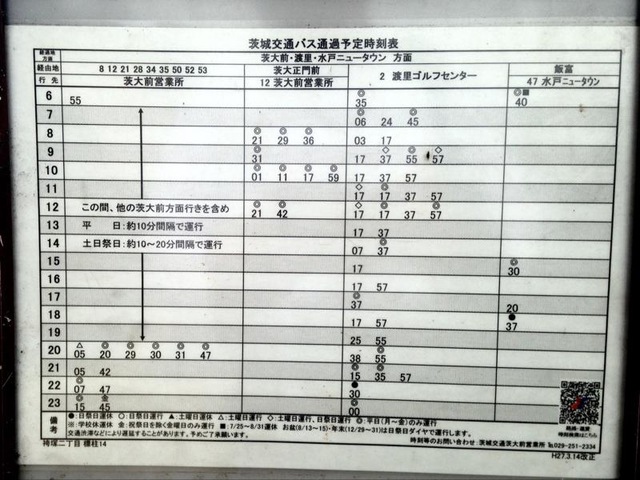 茨城交通バス通過予定時刻表
経過地方面 茨大前・渡里・水戸ニュータウン 方面
経由地 8 12 21 28 34 35 50 52 53 茨大正門前 2 渡里ゴルフセンター 飯富
行 先 茨大前営業所 12 茨大前営業所 47 水戸ニュータウン
6 55 ◎35 ◎■40
7 ◎06 24 ◎45
8 ◎21 ◎29 ◎36 03 17
9 ◎31 17 ◇37 ◎55 ◇57
10 ◎01 ◎11 ◎17 ◎59 17 37 57
11 ◇17 ◎17 37 57
12 この間、他の茨大前方面行きを含め ◎21 ◎42 ◇17 ◎17 37 ◎57
13 平 日:約10分間隔で運行 17 37
14 土日祭日:約10～20分間隔で運行 07 ◎37
15 17 ◎30
16 17 57
17 ◎37 20
18 17 57 ●37
19 25 55
20 △05 ◎20 ◎29 ◎30 ◎31 ◎47 38 ◎55
21 05 42 ◎15 ◎35 57
22 ◎07 47 ●30
23 ◎15 金45 ◎00
備考 ●:日祭日運休 ○:日祭日運行 ▲:土曜日運休 △:土曜日運行 ◇:土曜日、日祭日運行 ◎:平日(月～金)のみ運行
※:学校休運休 金:祝祭日を除く金曜日のみ運行 ■:7/25～8/31運休 お盆(8/13～15)・年末(12/29～31)は日祭日ダイヤで運行します。
交通渋滞などにより遅延することがあります。予めご了承願います。 時刻等のお問い合わせ:茨城交通茨大前営業所 ☎029-251-2334
袴塚二丁目 標柱14 H27.3.14改正